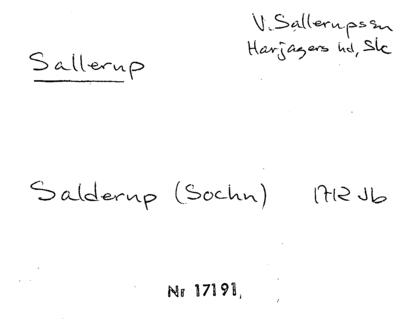 V. Sallerupssn
Harjagers hd, Sk
Sallerup
Salderup (Sochn) 1712 Jb
Nr 17191,